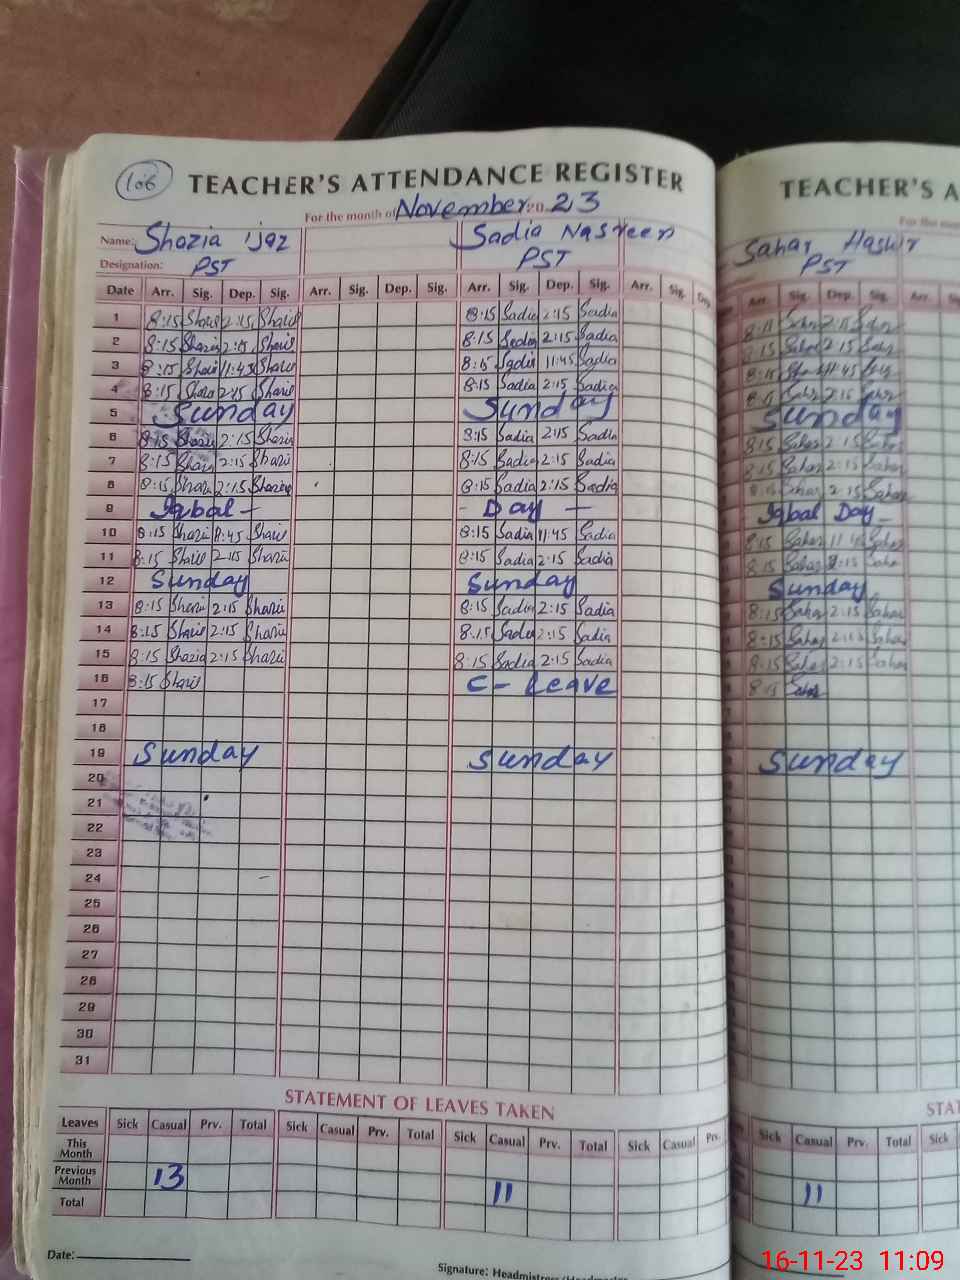 106
TEACHER'S ATTENDANCE REGISTER
For the month of November 2023
Name: Shazia ijaz Sadia Nasreen
Designation: PST PST
Date Arr. Sig. Dep. Sig. Arr. Sig. Dep. Sig. Arr. Sig. Dep. Sig. Arr. Sig. Dep
1 8:15 Shazia 2:15 Shazia 8:15 Sadia 2:15 Sadia
2 8:15 Shazia 2:15 Shazia 8:15 Sadia 2:15 Sadia
3 8:15 Shazia 11:45 Shazia 8:15 Sadia 11:45 Sadia
4 8:15 Shazia 2:15 Shazia 8:15 Sadia 2:15 Sadia
5 Sunday Sunday
6 8:15 Shazia 2:15 Shazia 8:15 Sadia 2:15 Sadia
7 8:15 Shazia 2:15 Shazia 8:15 Sadia 2:15 Sadia
8 8:15 Shazia 2:15 Shazia 8:15 Sadia 2:15 Sadia
9 Iqbal - - Day -
10 8:15 Shazia 11:45 Shazia 8:15 Sadia 11:45 Sadia
11 8:15 Shazia 2:15 Shazia 8:15 Sadia 2:15 Sadia
12 Sunday Sunday
13 8:15 Shazia 2:15 Shazia 8:15 Sadia 2:15 Sadia
14 8:15 Shazia 2:15 Shazia 8:15 Sadia 2:15 Sadia
15 8:15 Shazia 2:15 Shazia 8:15 Sadia 2:15 Sadia
16 8:15 Shazia C- Leave
17
18
19 Sunday Sunday
20
21
22
23
24
25
26
27
28
29
30
31
STATEMENT OF LEAVES TAKEN
Leaves Sick Casual Prv. Total Sick Casual Prv. Total Sick Casual Prv. Total Sick Casual Prv.
This Month
Previous Month 13 11
Total
Date:
Signature: Headmistress/Headmaster
TEACHER'S A
For the
Sahar Hashir
PST
Arr. Sig. Dep. Sig. Arr.
8:15 Sahar 2:15 Sahar
8:15 Sahar 2:15 Sahar
8:15 Sahar 11:45 Sahar
8:15 Sahar 2:15 Sahar
Sunday
8:15 Sahar 2:15 Sahar
8:15 Sahar 2:15 Sahar
8:15 Sahar 2:15 Sahar
Iqbal Day -
8:15 Sahar 11:45 Sahar
8:15 Sahar 2:15 Sahar
Sunday
8:15 Sahar 2:15 Sahar
8:15 Sahar 2:15 Sahar
8:15 Sahar 2:15 Sahar
8:15 Sahar
Sunday
STAT
Sick Casual Prv. Total Sick
11
16-11-23 11:09